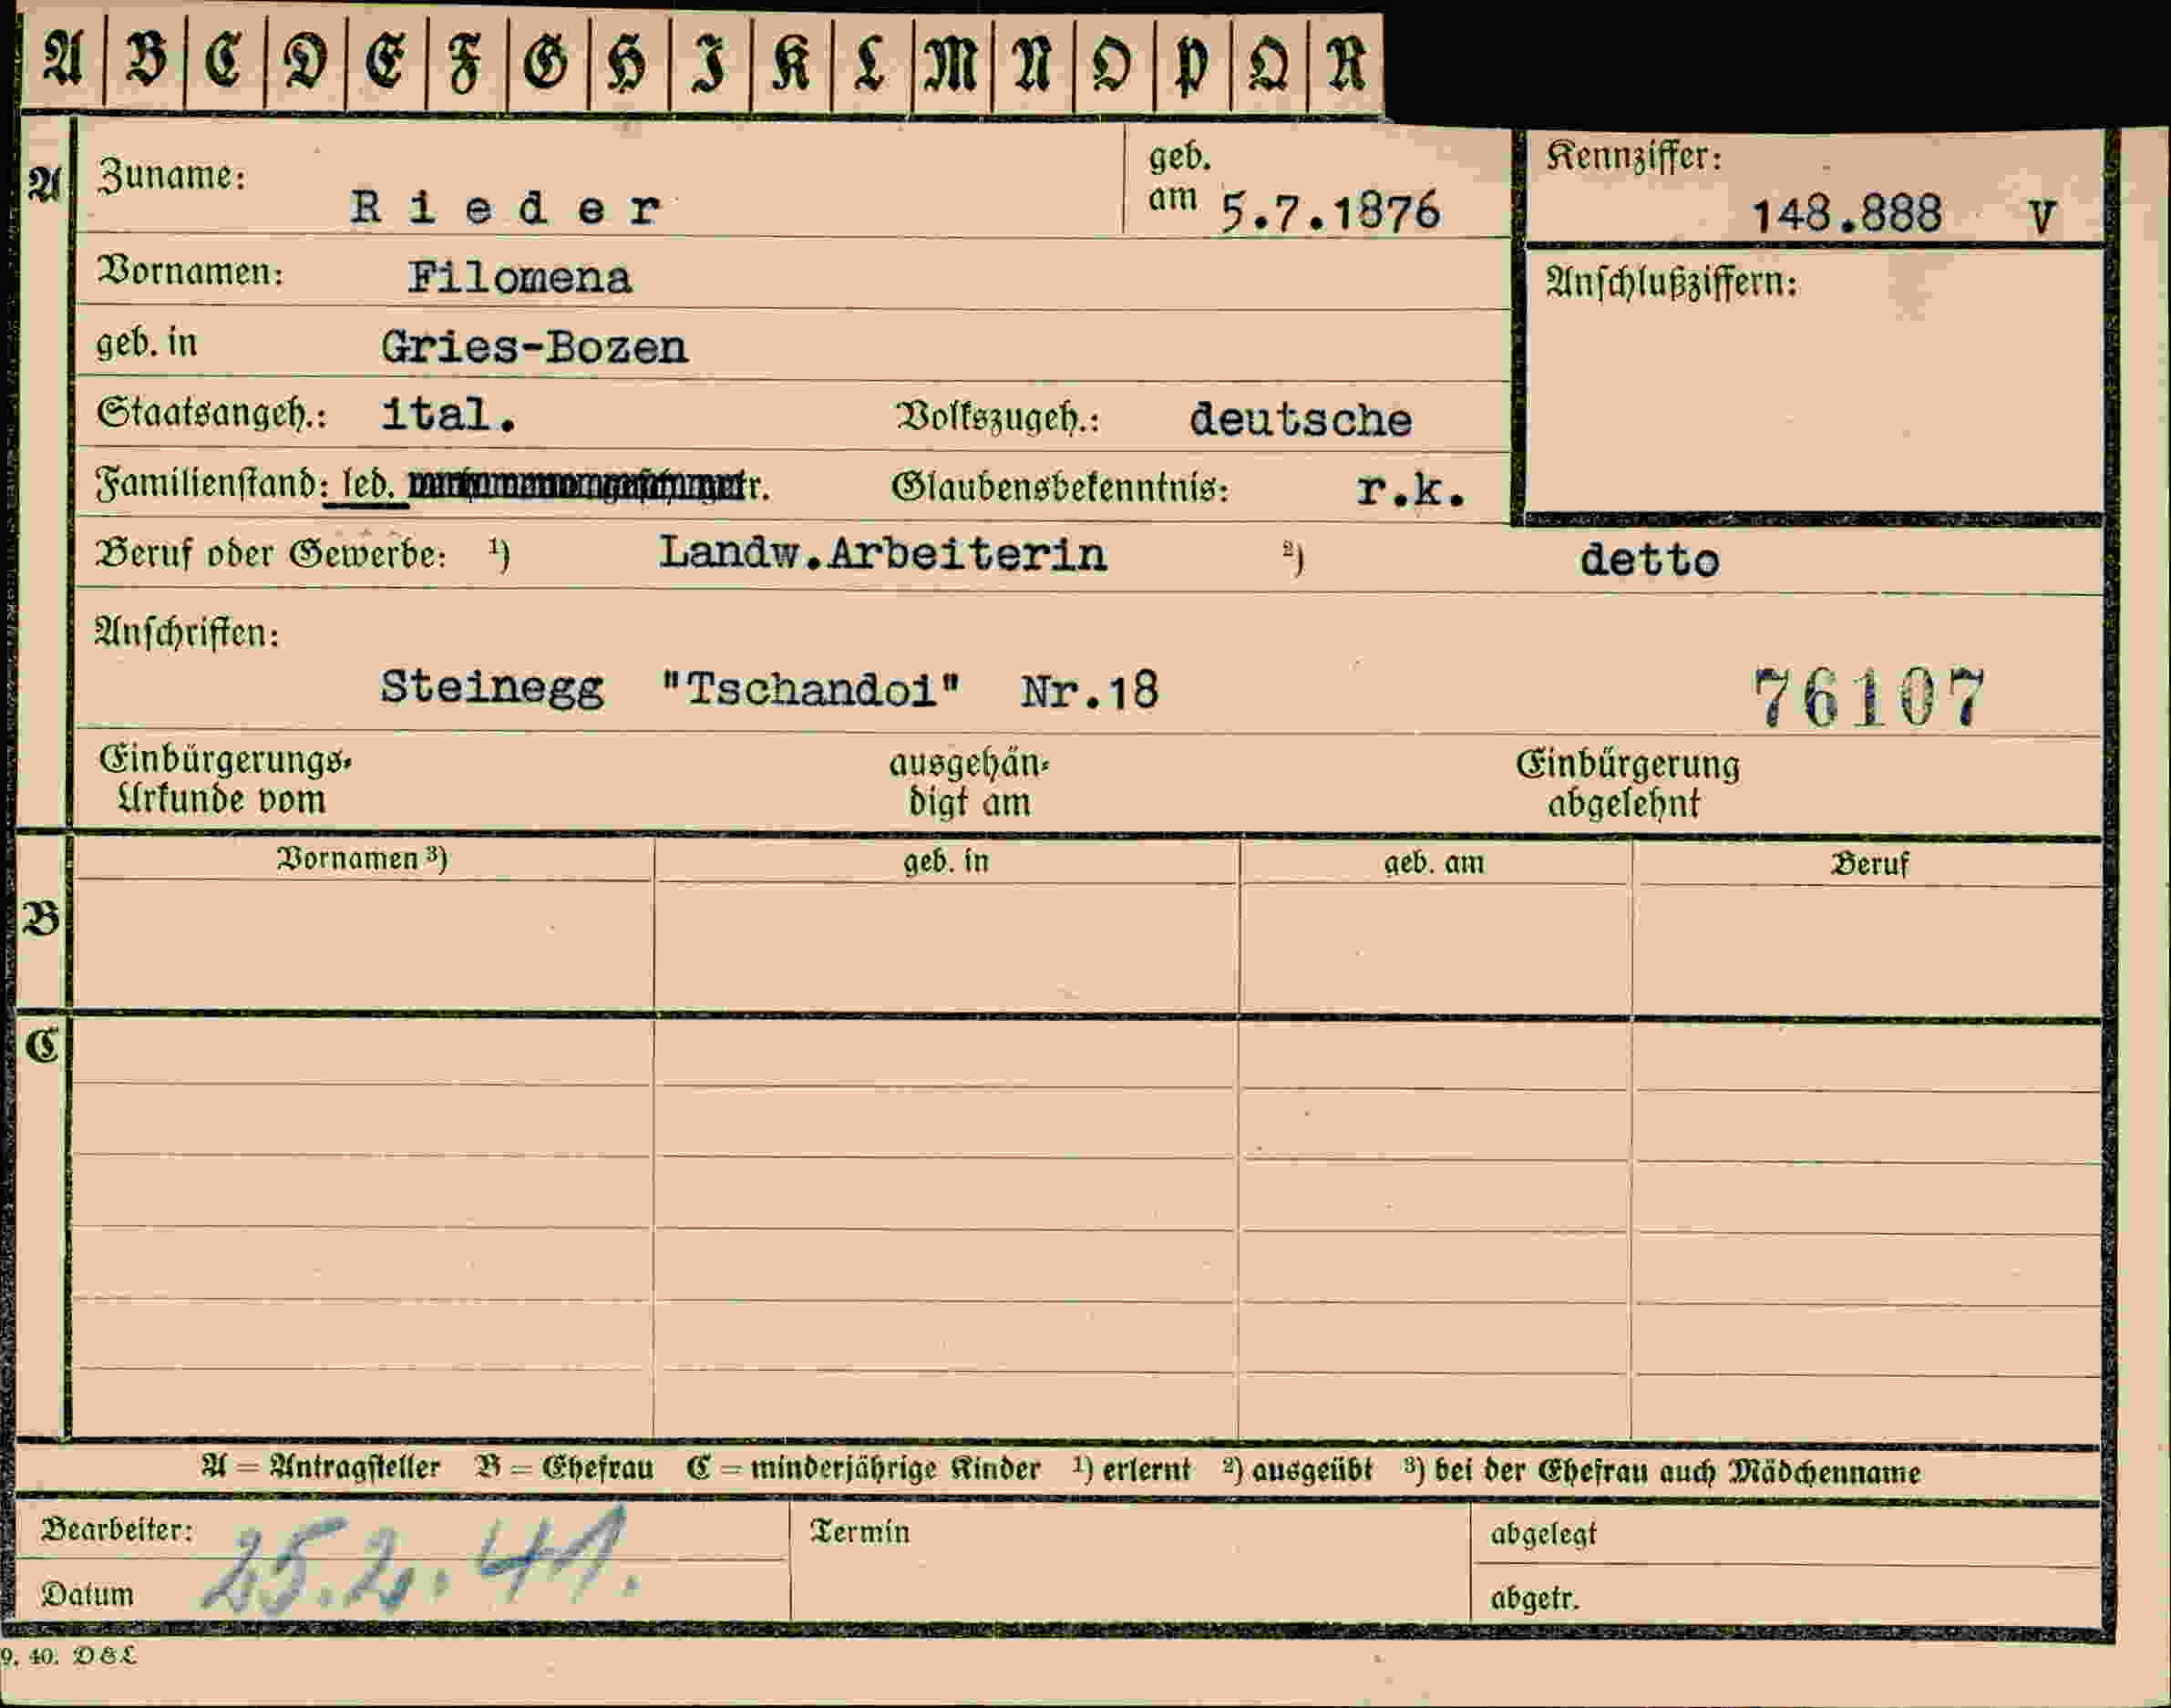 A B C D E F G H I K L M N O P Q R
A
Zuname: Rieder
geb. am 5.7.1876
Kennziffer: 148.888 V
Vornamen: Filomena
Anschlußziffern:
geb. in Gries-Bozen
Staatsangeh.: ital. Volkszugeh.: deutsche
Familienstand: led. tr. Glaubensbekenntnis: r.k.
Beruf oder Gewerbe: 1) Landw.Arbeiterin 2) detto
Anschriften:
Steinegg "Tschandoi" Nr.18 76107
Einbürgerungs-
Urkunde vom
ausgehän-
digt am
Einbürgerung
abgelehnt
B
Vornamen 3) geb. in geb. am Beruf
C
A = Antragsteller B = Ehefrau C = minderjährige Kinder 1) erlernt 2) ausgeübt 3) bei der Ehefrau auch Mädchenname
Bearbeiter: Termin abgelegt
Datum 25.2.41. abgetr.
9. 40. D&L